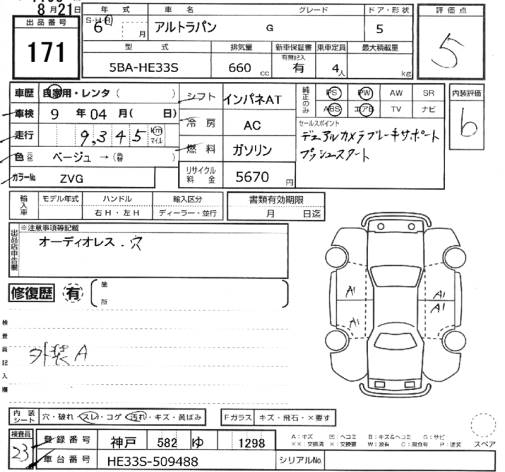 8月21日
出品番号 171
S・H・R 年式 6年 月
車名 アルトラパン
グレード G
ドア・形状 5
評価点 5
型式 5BA-HE33S
排気量 660 cc
新車保証書 有無記入 有
乗車定員 4人
最大積載量 kg
車歴 自家用・レンタ( )
車検 9年04月( 日)
走行 9,345 km マイル
色 ベージュ →( )
カラーNo. ZVG
シフト インパネAT
冷房 AC
燃料 ガソリン
リサイクル料金 5670円
純正のみ PS PW AW SR
ABS エアB TV ナビ
内装評価 6
セールスポイント
デュアルカメラブレーキサポート
プッシュスタート
輸入車 モデル年式 ハンドル 輸入区分
年 右H・左H ディーラー・並行
書類有効期限
月 日迄
出品店申告欄
※注意事項等記載
オーディオレス・穴
修復歴 有 箇所
検査員記入欄
外装A
A1 A1
A1 A1
内装シート 穴・破れ・スレ・コゲ・汚れ・キズ・黄ばみ
Fガラス キズ・飛石・×要す
検査員 23
登録番号 神戸 582 ゆ 1298
車台番号 HE33S-509488
シリアルNo.
A:キズ
スペア